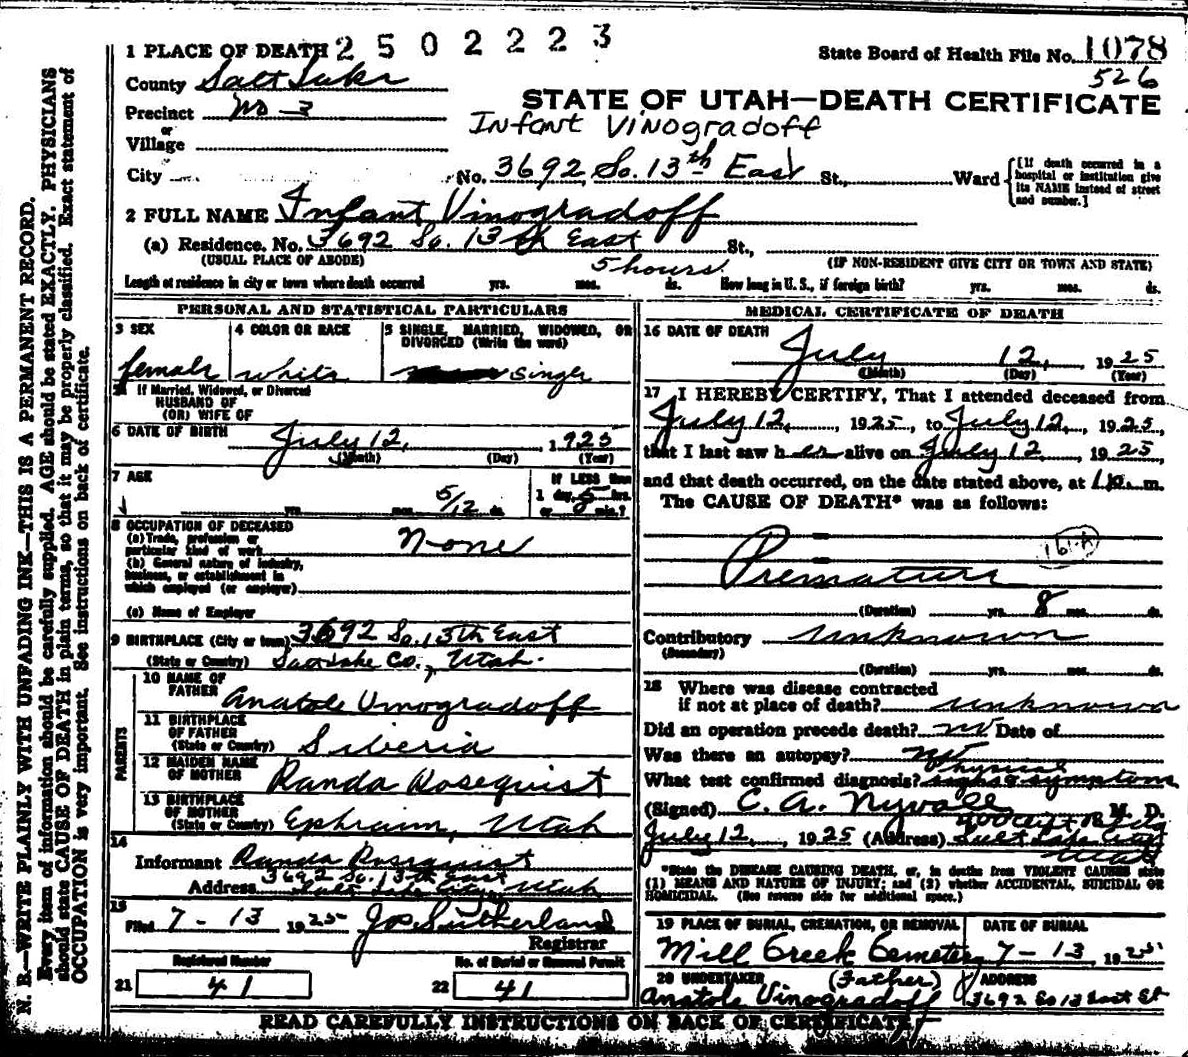 1 PLACE OF DEATH 2502223
State Board of Health File No. 1078
526
County Salt Lake
Precinct No 3
or
Village
City
STATE OF UTAH—DEATH CERTIFICATE
Infant Vinogradoff
No. 3692 So. 13th East St., Ward
[If death occurred in a hospital or institution give its NAME instead of street and number.]
2 FULL NAME Infant Vinogradoff
(a) Residence. No. 3692 So. 13th East St.,
(USUAL PLACE OF ABODE) (IF NON-RESIDENT GIVE CITY OR TOWN AND STATE)
5 hours
Length of residence in city or town where death occurred yrs. mos. ds. How long in U. S., if foreign birth? yrs. mos. ds.
PERSONAL AND STATISTICAL PARTICULARS
3 SEX
female
4 COLOR OR RACE
white
5 SINGLE, MARRIED, WIDOWED, OR DIVORCED (Write the word)
single
If Married, Widowed, or Divorced
HUSBAND OF
(OR) WIFE OF
6 DATE OF BIRTH July 12, 1925
(Month) (Day) (Year)
7 AGE
yrs. mos. 5/12 ds.
If LESS than
1 day, 5 hrs.
or min.?
8 OCCUPATION OF DECEASED
(a) Trade, profession or
particular kind of work None
(b) General nature of industry,
business, or establishment in
which employed (or employer)
(c) Name of Employer
9 BIRTHPLACE (City or town) 3692 So. 13th East
(State or Country) Salt Lake Co., Utah.
PARENTS
10 NAME OF FATHER Anatole Vinogradoff
11 BIRTHPLACE OF FATHER
(State or Country) Siberia
12 MAIDEN NAME OF MOTHER Randa Rosequist
13 BIRTHPLACE OF MOTHER
(State or Country) Ephraim, Utah
14
Informant Randa Rosequist
3692 So. 13th East
Address Salt Lake City, Utah
15
Filed 7-13 1925 Jos Sutherland
Registrar
Registered Number
21 41
No. of Burial or Removal Permit
22 41
MEDICAL CERTIFICATE OF DEATH
16 DATE OF DEATH
July 12, 1925
(Month) (Day) (Year)
17 I HEREBY CERTIFY, That I attended deceased from
July 12, 1925, to July 12, 1925,
that I last saw her alive on July 12, 1925,
and that death occurred, on the date stated above, at m.
The CAUSE OF DEATH* was as follows:
161-A
Premature
(Duration) yrs. 8 mos. ds.
Contributory unknown
(Secondary)
(Duration) yrs. mos. ds.
18 Where was disease contracted
if not at place of death? unknown
Did an operation precede death? no Date of
Was there an autopsy? no
Physical
What test confirmed diagnosis? signs & symptoms
(Signed) C. A. Nyvall M. D.
July 12, 1925 (Address) Salt Lake City
Utah
*State the DISEASE CAUSING DEATH, or, in deaths from VIOLENT CAUSES state
(1) MEANS AND NATURE OF INJURY; and (2) whether ACCIDENTAL, SUICIDAL OR
HOMICIDAL. (See reverse side for additional space.)
19 PLACE OF BURIAL, CREMATION, OR REMOVAL
Mill Creek Cemetery
DATE OF BURIAL
7-13, 1925
20 UNDERTAKER (Father)
Anatole Vinogradoff
ADDRESS
3692 So 13 East St
READ CAREFULLY INSTRUCTIONS ON BACK OF CERTIFICATE
N. B.—WRITE PLAINLY WITH UNFADING INK—THIS IS A PERMANENT RECORD.
Every item of information should be carefully supplied. AGE should be stated EXACTLY. PHYSICIANS
should state CAUSE OF DEATH in plain terms, so that it may be properly classified. Exact statement of
OCCUPATION is very important. See instructions on back of certificate.